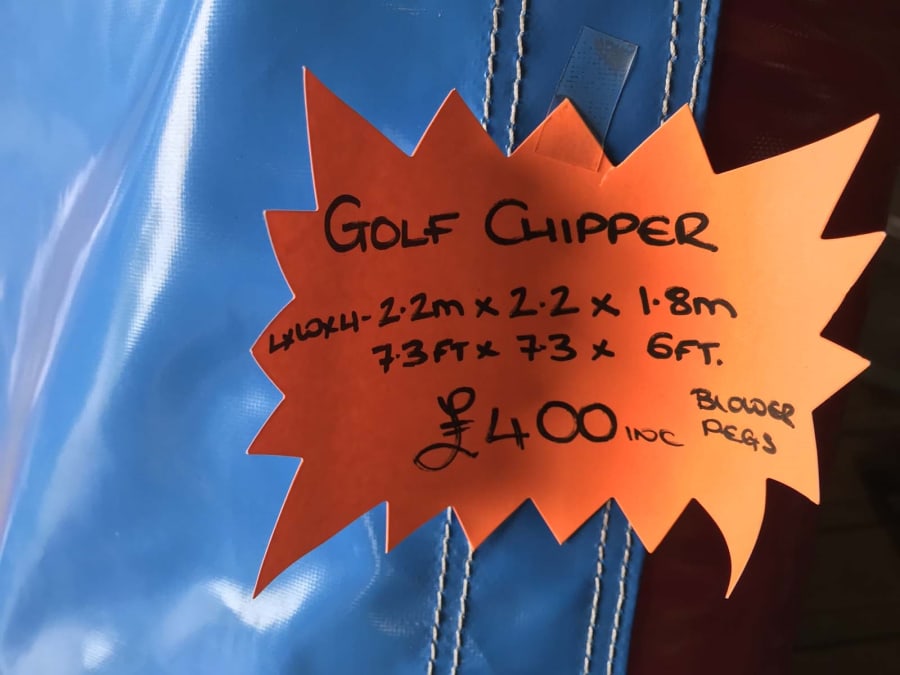 GOLF CHIPPER
LxWxH - 2.2m x 2.2 x 1.8m
7.3FT x 7.3 x 6FT.
£400 INC BLOWER
PEGS